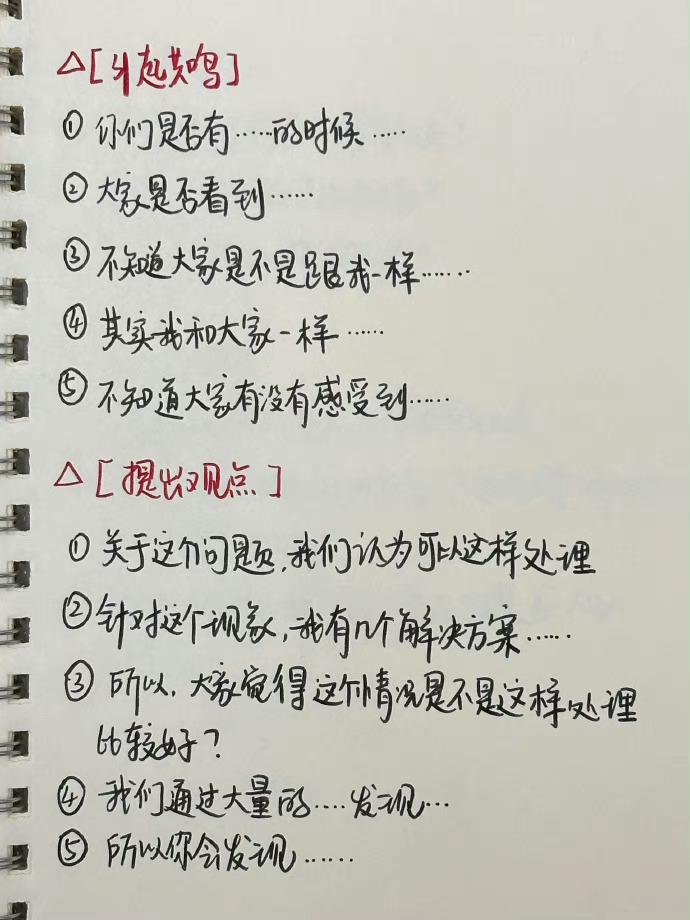 △[引起共鸣]
①你们是否有……的时候……
②大家是否看到……
③不知道大家是不是跟我一样……
④其实我和大家一样……
⑤不知道大家有没有感受到……
△[提出观点]
①关于这个问题,我们认为可以这样处理
②针对这个现象,我有几个解决方案……
③所以,大家觉得这个情况是不是这样处理
比较好?
④我们通过大量的……发现…
⑤所以你会发现……